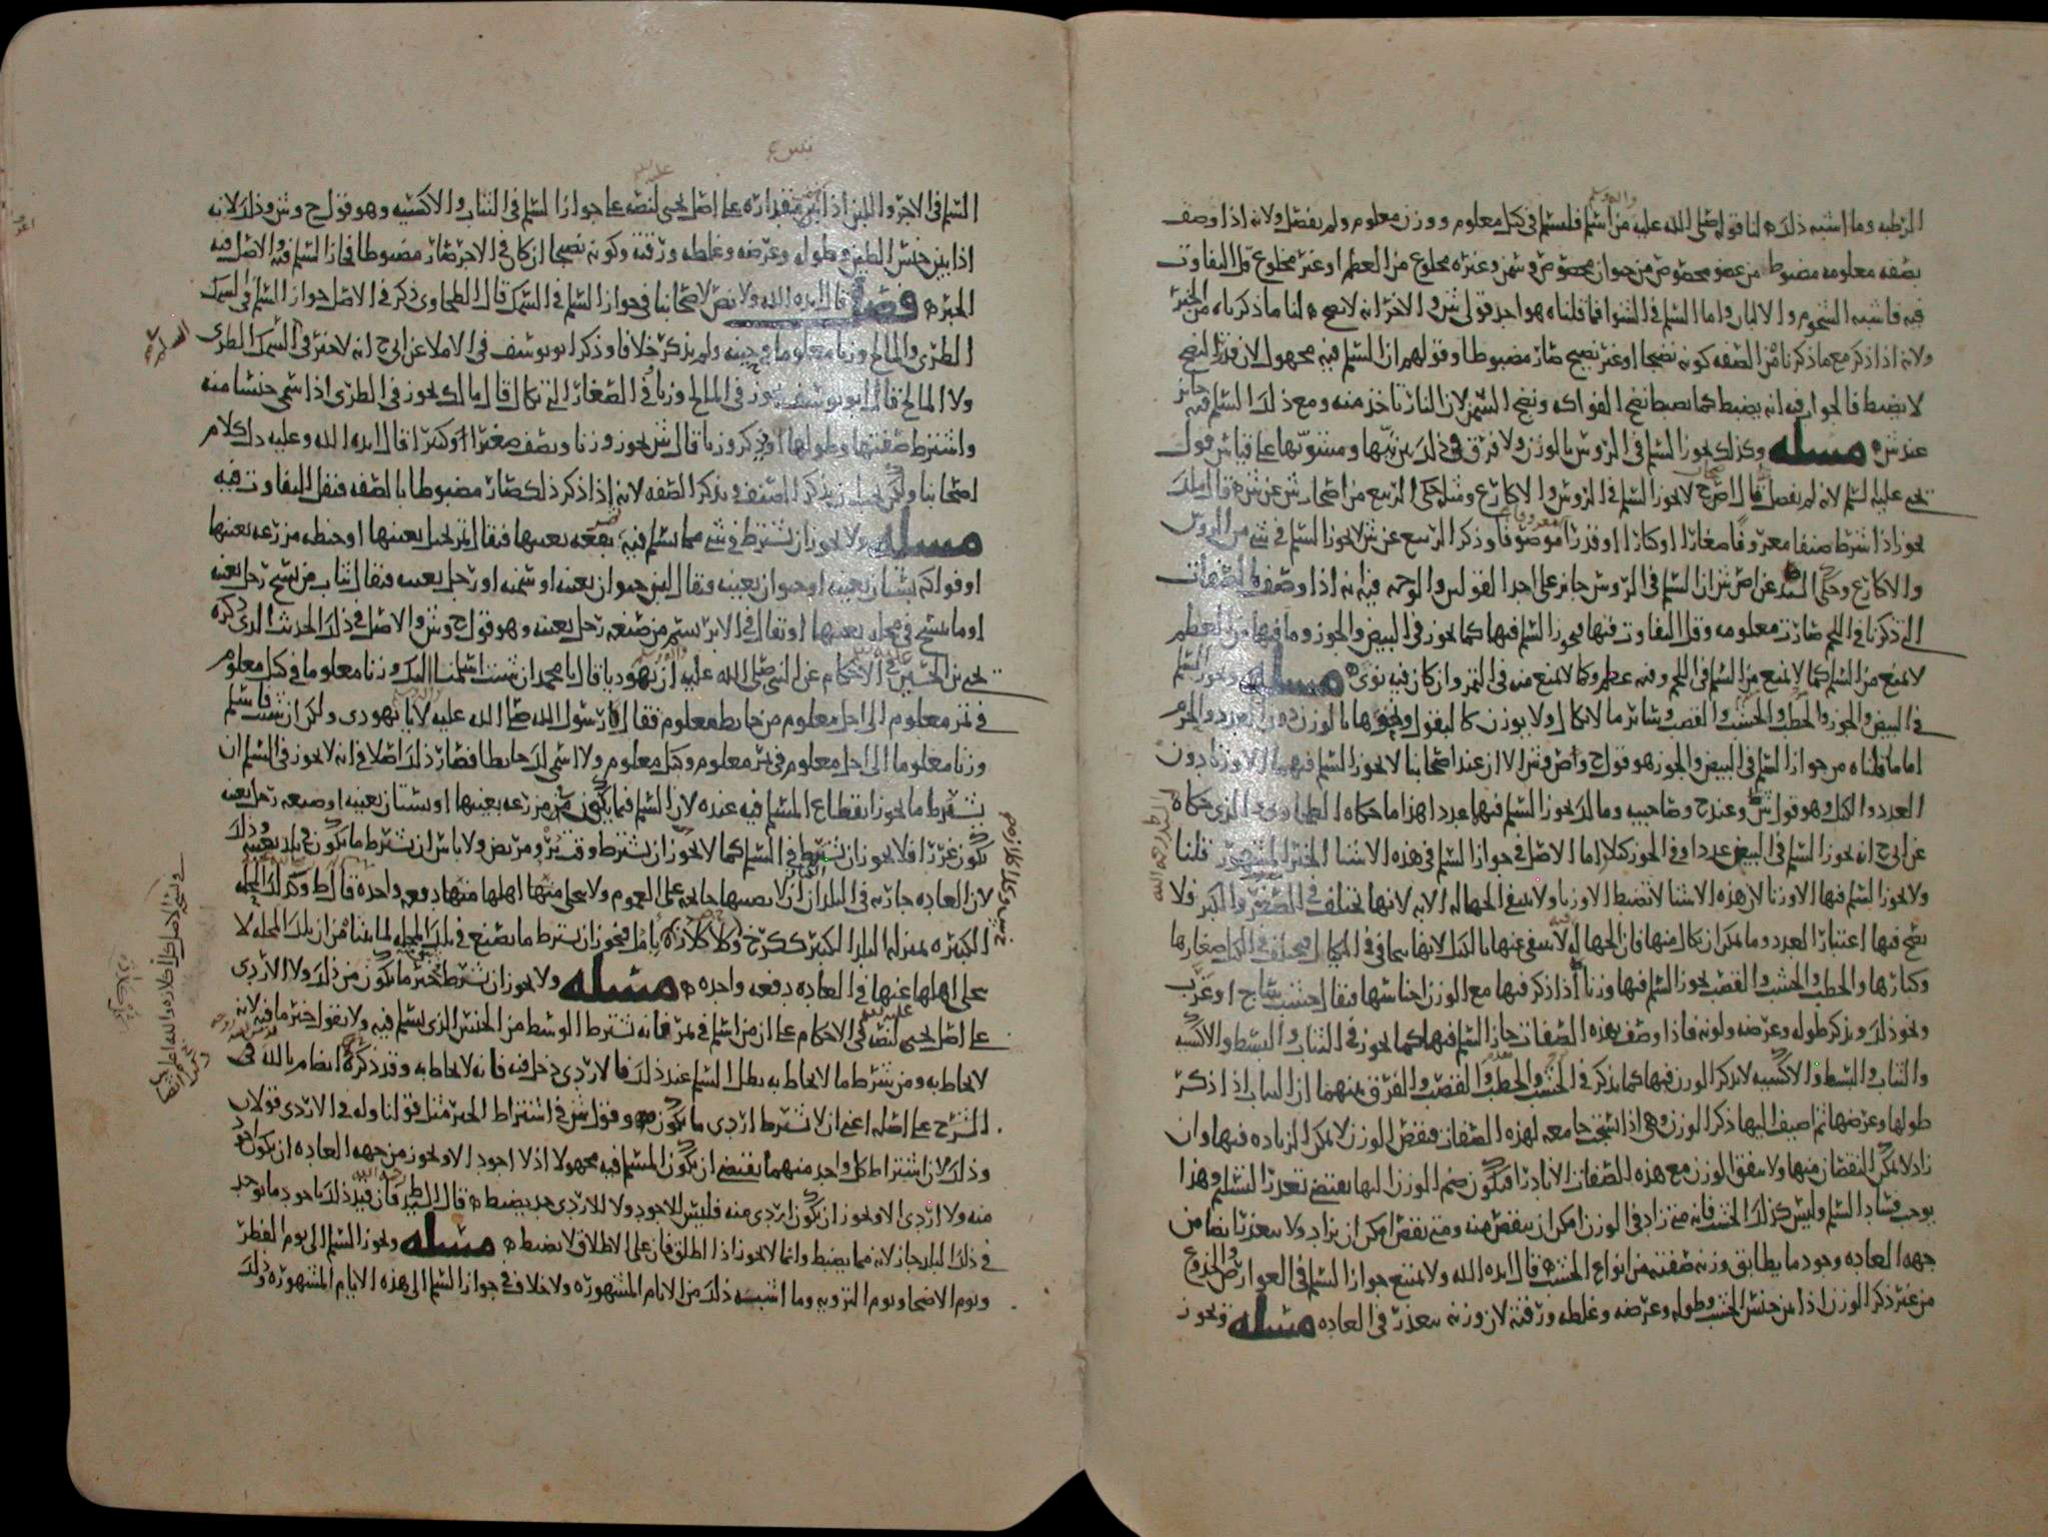 الرطبه وما اشبه ذلك لنا قوله صلى الله عليه من اسلم فليسلم في كيل معلوم ووزن معلوم ولم يفصل ولانه اذا وصف
بصفه معلومه مضبوط من عضو مخصوص من حيوان مخصوص وسمن وغيره مخلوع من العظم او غير مخلوع قل التفاوت
فيه فاشبه الشحوم والالبان واما السلم في الشوا فما قلناه هو احد قولي ش والاخر انه لا يصح لنا ما ذكرناه من الخبر
ولانه اذا ذكر مع ما ذكرنا من الصفه كونه نضيجا او غير نضيج صار مضبوطا وقولهم ان السلم فيه مجهول لان قدر النضج
لا يضبط فالجواب فيه انه يضبط كما يضبط نضج الفواكه ونضج السمن لان النار تاخذ منه ومع ذلك السلم فيه جايز
عند ش مسله وكذلك يجوز السلم في الروس بالوزن ولا فرق في ذلك بين نيها ومشويها على قياس قول
يحيى عليه السلم لانه لم يفصل قال اصح لا يجوز السلم في الروس والاكارع ومثله حكى الربيع من اصحاب ش عن ش قال ملك
يجوز اذا شرط صنفا معروفا صغارا او كبارا او قدرا موصوفا وذكر الربيع عن ش لا يجوز السلم في شي من الروس
والاكارع وحكى السيد عن اصش ان السلم في الروس جايز على احد القولين والوجه فيه انه اذا وصف بالصفات
التي ذكرنا في اللحم صارت معلومه وقل التفاوت فيها فيجوز السلم فيها كما يجوز في البيض والجوز وما فيها من العظم
لا يمنع من السلم كما لا يمنع من السلم في اللحم وفيه عظم وكما لا يمنع منه في التمر وان كان فيه نوى مسله ويجوز السلم
في البيض والجوز والحطب والخشب والقصب وسائر ما لا يكال ولا يوزن كالبقول ونحوها بالوزن دون العدد والحزم
اما ما قلناه من جواز السلم في البيض والجوز هو قول ح واص وش الا ان عند اصحابنا لا يجوز السلم فيهما الا وزنا دون
العدد والكيل وهو قول ش وعند ح وصاحبيه ومالك يجوز السلم فيهما عددا هذا ما حكاه الطحاوي والذي حكاه
عن ابي ح انه يجوز السلم في البيض عددا وفي الجوز كيلا اما الاصل في جواز السلم في هذه الاشيا الخبر المشهور قلنا
ولا يجوز السلم فيها الا وزنا لان هذه الاشيا لا تضبط الا وزنا ولا تنتفي الجهاله الا به لانها تختلف في الصغر والكبر فلا
يصح فيها اعتبار العدد وما يمكن ان يكال منها فان الجهاله لا تنتفي عنها بالكيل لانها تتجافى في المكيال فيختلف في الكيل صغارها
وكبارها والحطب والخشب والقصب يجوز السلم فيها وزنا اذا ذكر فيها مع الوزن اجناسها فيقال خشب ساج او غرب
ونحو ذلك ويذكر طوله وعرضه ولونه فاذا وصف بهذه الصفات جاز السلم فيها كما يجوز في الثياب والبسط والاكسيه
والثياب والبسط والاكسيه لا يذكر الوزن فيها كما يذكر في الخشب والحطب والقصب والفرق بينهما ان الثياب اذا ذكر
طولها وعرضها ثم اضيف اليها ذكر الوزن وهي اذا نسجت جامعه لهذه الصفات فنقص الوزن لا يمكن الزياده فيها وان
زاد لا يمكن النقصان منها ولا يتفق الوزن مع هذه الصفات الا نادرا فيكون ضم الوزن اليها يقتضي تعذر التسليم وهذا
يوجب فساد السلم وليس كذلك الخشب فانه متى زاد في الوزن امكن ان ينقص منه ومتى نقص امكن ان يزاد ولا يتعذر ايضا من
جهه العاده وجود ما يطابق وزنه صفته من انواع الخشب قال ايده الله ولا يمتنع جواز السلم في العوارض والجذوع
من غير ذكر الوزن اذا بين جنس الخشب وطوله وعرضه وغلظه ورقته لان وزنه يتعذر في العاده مسله ويجوز
السلم في الاجر واللبن اذا بين مقداره على اصل يحيى لنصه على جواز السلم في الثياب والاكسيه وهو قول ح وش وذلك لانه
اذا بين جنس الطين وطوله وعرضه وغلظه ورقته وكونه نضيجا ان كان في الاجر صار مضبوطا فجاز السلم فيه والاصل فيه
الخبر فصل قال ايده الله ولا نص لاصحابنا في جواز السلم في السمك قال الطحاوي ذكر في الاصل جواز السلم في السمك
الطري والمالح وزنا معلوما في حينه ولم يذكر خلافا وذكر ابو يوسف في الاملا عن ابي ح انه لا خير في السمك الطري
ولا المالح قال ابو يوسف يجوز في المالح وزنا وفي الصغار التي تكال قال مالك يجوز في الطري اذا سمي جنسا منه
واشترط صفتها وطولها او ذكر وزنا قال ش يجوز وزنا ويصف صغيرا او كبيرا قال ايده الله وعليه دل كلام
اصحابنا ولكن يجب ان يذكر الصنف ويذكر الصفه لانه اذا ذكر ذلك صار مضبوطا بالصفه فيقل التفاوت فيه
مسله ولا يجوز ان يشترط في شي مما يسلم فيه بقعه بعينها فيقال تمر نخيل بعينها او حنطه مزرعه بعينها
او فواكه بستان بعينه او حيوان بعينه فيقال لبن حيوان بعينه او سمنه او رجل بعينه فيقال ثياب من نسج رجل بعينه
او ما ينسج في محله بعينها او يقال في الابريسم من صنعه رجل بعينه وهو قول ح وش والاصل في ذلك الحديث الذي ذكره
يحيى بن الحسين في الاحكام عن النبي صلى الله عليه ان يهوديا قال يا محمد ان شئت اسلمت اليك وزنا معلوما في كيل معلوم
في تمر معلوم الى اجل معلوم من حايط معلوم فقال رسول الله صلى الله عليه لا يا يهودي ولكن ان شئت فاسلم
وزنا معلوما الى اجل معلوم في تمر معلوم وكيل معلوم ولا اسمي لك حايطا فصار ذلك اصلا في انه لا يجوز في السلم ان
يشترط ما يجوز انقطاع المسلم فيه عنده لان السلم فيما يكون من مزرعه بعينها او بستان بعينه او صنعه رجل بعينه
يكون غررا فلا يجوز ان يشترط في السلم كما لا يجوز ان يشترط وقت برو مريض ولا باس ان يشترط ما يكون في بلد بعينه وذلك
لان العاده جاريه في البلدان ان لا يصيبها جايحه على العموم ولا يجلى منها اهلها دفعه واحده قال ط وكذلك المحله
الكبيره بمنزله البلد الكبير ككرخ وكلا كلاذه بامل فيجوز ان يشترط ما يصنع في تلك المحله لما بينا من ان تلك المحله لا
يجلى اهلها عنها في العاده دفعه واحده مسله ولا يجوز ان يشترط خير ما يكون من ذلك ولا الاردى
على اصل يحيى لنصه في الاحكام على ان من اسلم في تمر فانه يشترط الوسط من الجنس الذي يسلم فيه ولا يقول خير ما فيه لانه
لا يحاط به ومن شرط ما لا يحاط به بطل السلم عند ذلك فالاردى دخل فيه فانه لا يحاط به وقد ذكره ايضا م بالله في
الشرح على اصله اعني ان لا يشترط اردى ما يكون وقول ش في اشتراط الخير مثل قولنا وله في الاردى قولان
وذلك لان اشتراط كل واحد منهما يقتضي ان يكون المسلم فيه مجهولا اذ لا اجود الا ويجوز من جهه العاده ان يكون اجود
منه ولا اردى الا ويجوز ان يكون اردى منه فليس للاجود ولا للاردى حد يضبط قال السيد ط فان قيد ذلك باجود ما يوجد
في ذلك البلد جاز لانه مما يضبط وانما لا يجوز اذا اطلق فان على الاطلاق لا يضبط مسله ويجوز السلم الى يوم الفطر
ويوم الاضحى ويوم الترويه وما اشبه ذلك من الايام المشهوره ولا خلاف في جواز السلم الى هذه الايام المشهوره وذلك